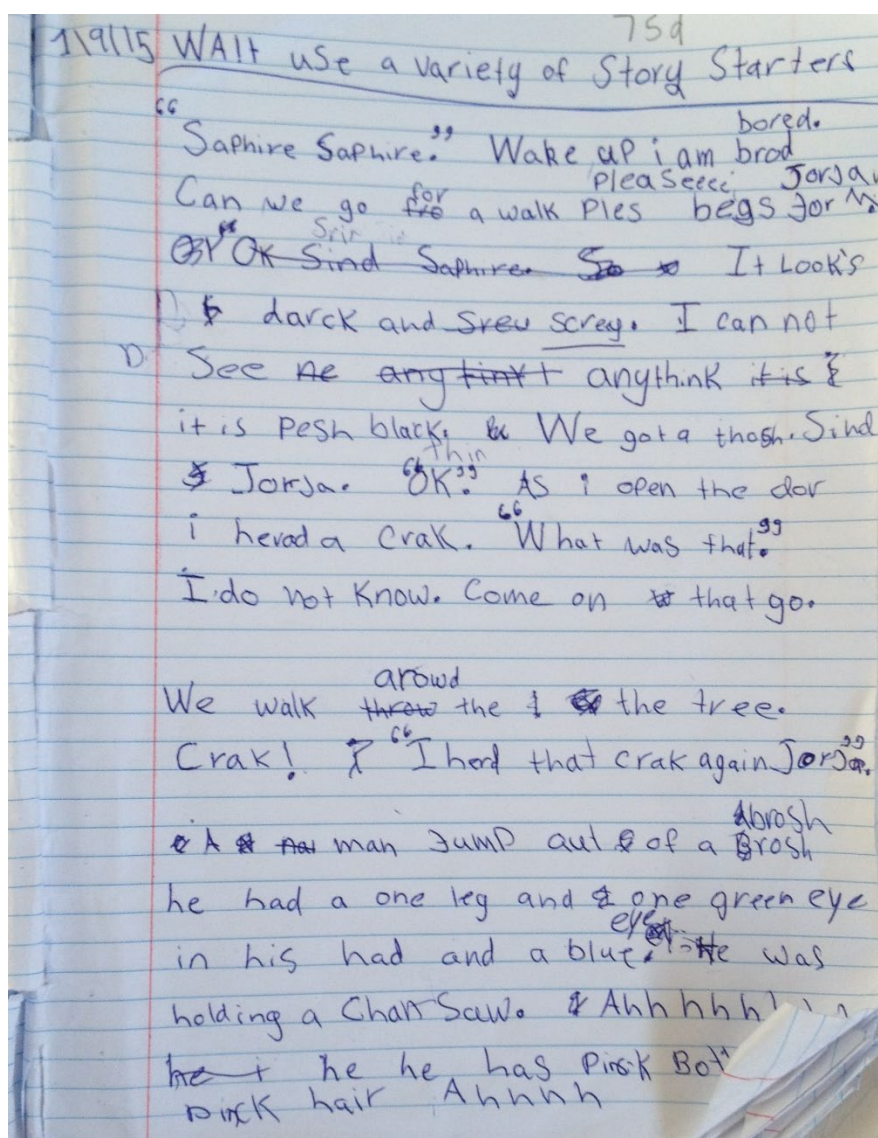 75d
1\9\15 WAlt use a variety of Story Starters
bored.
"Saphire Saphire." Wake up i am brod
Pleaseeei Jorja
Can we go for a walk Ples begs Jor
OK Sind Saphire. So It Look's
darck and Sreu screy. I can not
D See ne any tint anythink it is
it is Pesh black. We got a thosh. Sind
Jorja. "OK." As i open the dor
i herad a Crak. "What was that."
I do not Know. Come on that go.
arowd
We walk throw the the tree.
Crak! "I herd that crak again Jorja."
brosh
A man Jump aut of a Brosh
he had a one leg and one green eye
eye
in his had and a blue. He was
holding a Chan Saw. Ahhhhh
he he he has Pinck
Pinck hair Ahhhh